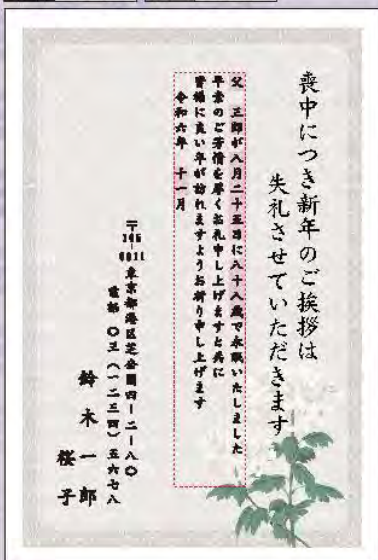 喪中につき新年のご挨拶は
失礼させていただきます
父 三郎が八月二十五日に八十八歳で永眠いたしました
平素のご芳情を厚くお礼申し上げますと共に
皆様に良い年が訪れますようお祈り申し上げます
令和六年 十一月
〒105-0011
東京都港区芝公園四-二-八〇
電話 〇三(一二三四)五六七八
鈴木一郎
桜子